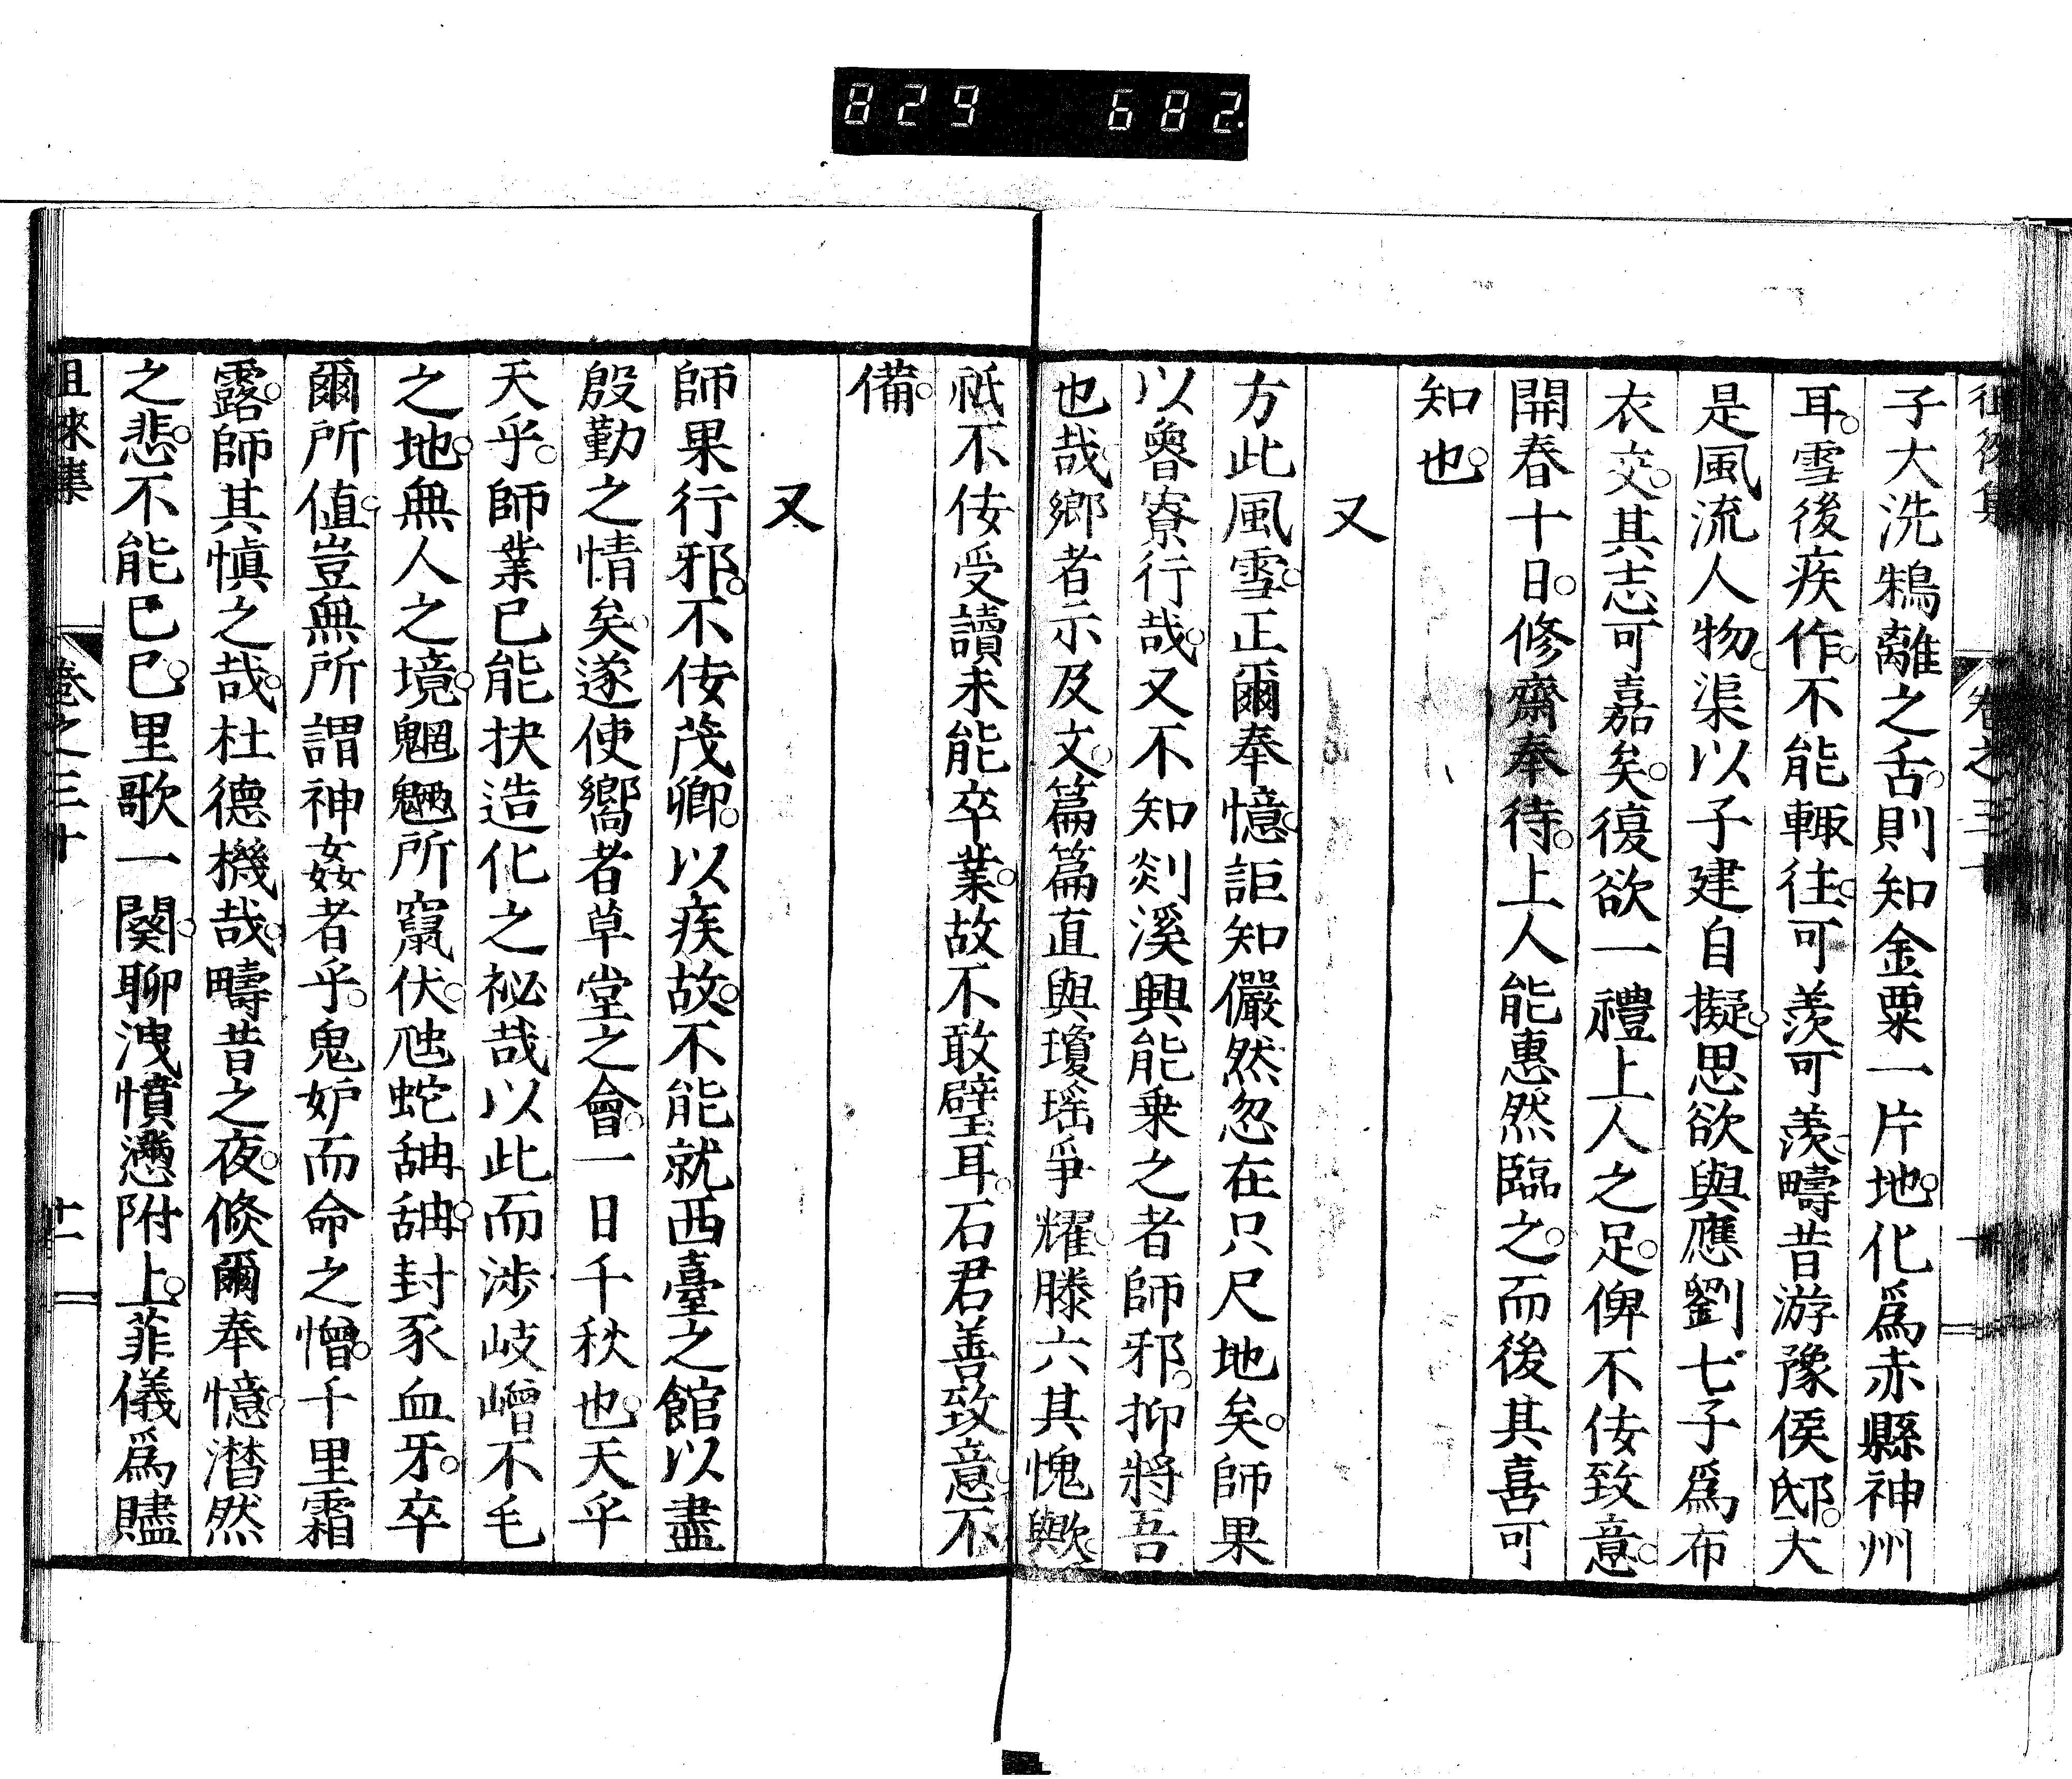 829 682
徂徠集 卷之三十
子大洗鴂離之舌。則知金粟一片地。化爲赤縣神州
耳。雪後疾作。不能輙往。可羨可羨。疇昔游豫侯邸。大
是風流人物。渠以子建自擬。思欲與應劉七子爲布
衣交。其志可嘉矣。復欲一禮上人之足。俾不佞致意。
開春十日。修齋奉待。上人能惠然臨之。而後其喜可
知也。
又
方此風雪。正爾奉憶。詎知儼然忽在只尺地矣。師果
以魯寮行哉。又不知剡溪興能乗之者師邪。抑將吾
也哉。鄉者示及文。篇篇直與瓊瑶爭耀。滕六其愧歟。
祇不佞受讀未能卒業。故不敢璧耳。石君善致意。不
備。
又
師果行邪。不佞茂卿。以疾故。不能就西臺之館以盡
殷勤之情矣。遂使嚮者草堂之會。一日千秋也。天乎
天乎。師業已能抉造化之祕哉。以此而涉岐嶒不毛
之地。無人之境。魍魎所竄伏。虺蛇䑙䑙。封豕血牙。卒
爾所値。豈無所謂神姦者乎。鬼妒而命之憎。千里霜
露。師其愼之哉。杜德機哉。疇昔之夜。倐爾奉憶。潸然
之悲。不能已已。里歌一闋。聊洩憤懣附上。菲儀爲贐
徂徠集 卷之三十 十一